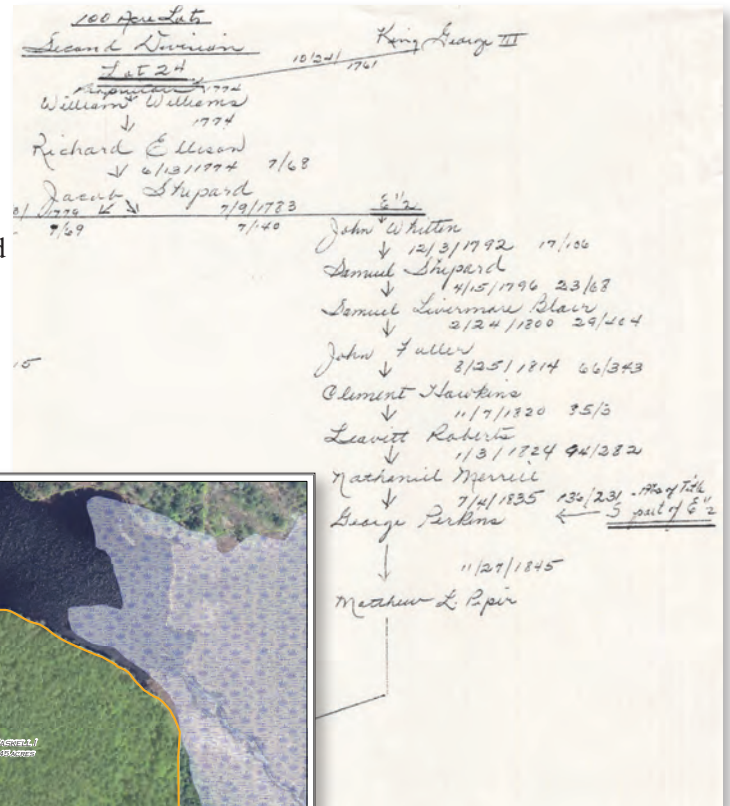 100 Acre Lots
Second Division
Lot 24
King George III
10/24/1761
1774
William Williams
1774
Richard Ellison
6/13/1774 7/68
Jacob Shepard
1774
7/69
7/9/1783
7/140
E 1/2
John Whitten
12/3/1792 17/106
Samuel Shepard
4/15/1796 23/68
Samuel Livermore Blair
2/24/1800 29/404
John Fuller
8/25/1814 66/343
Clement Hawkins
11/7/1820 85/3
Leavitt Roberts
1/3/1824 94/282
Nathaniel Merrill
7/4/1835 136/231
George Perkins
S part of E 1/2
11/27/1845
Matthew L. Piper
15
d